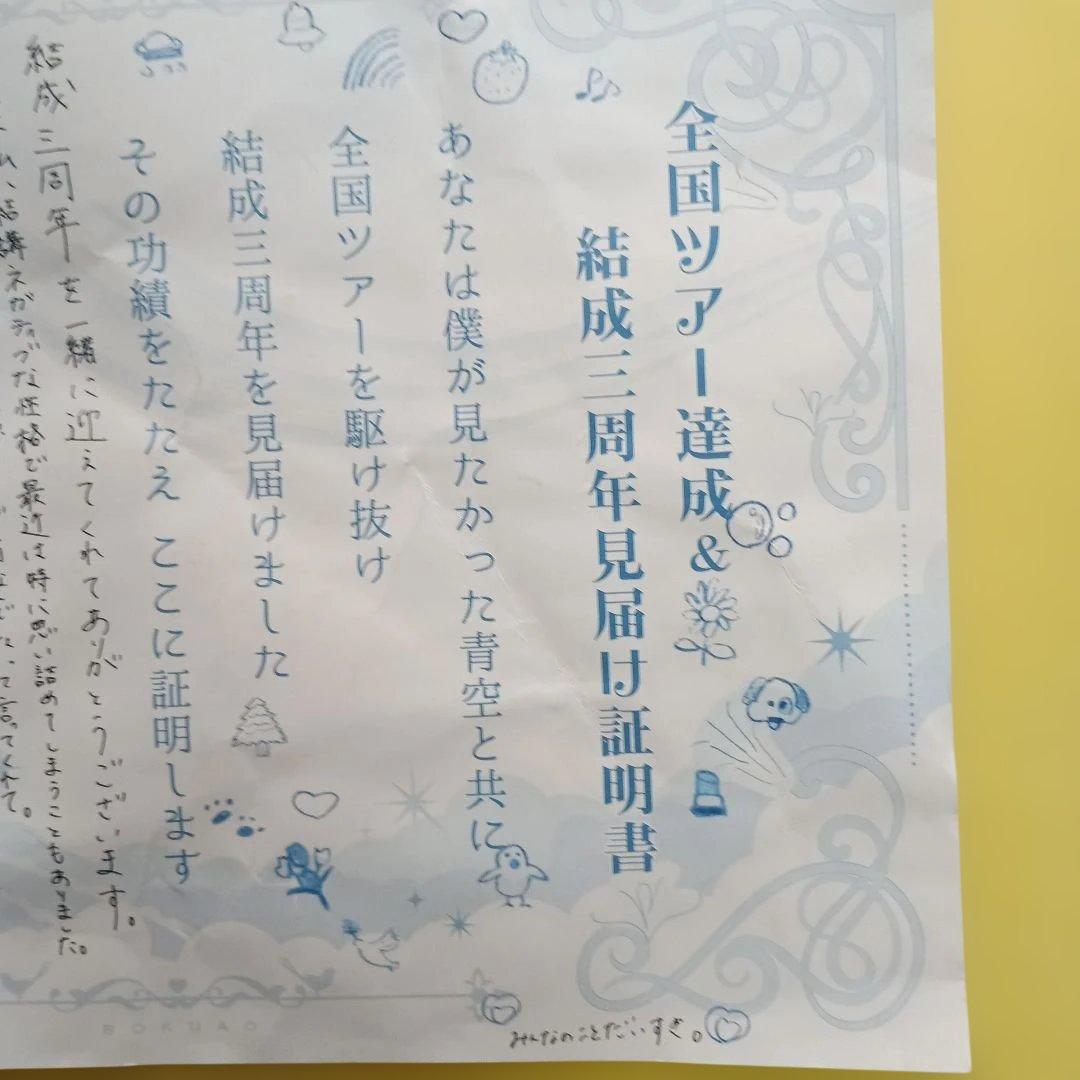 全国ツアー達成&
結成三周年見届け証明書
あなたは僕が見たかった青空と共に
全国ツアーを駆け抜け
結成三周年を見届けました
その功績をたたえ ここに証明します
結成三周年を一緒に迎えてくれてありがとうございます。
結構ネガティブな性格で最近は特に思い詰めてしまうこともありました。
って言ってくれて。
みんなのことだいすき。
BOKUAO